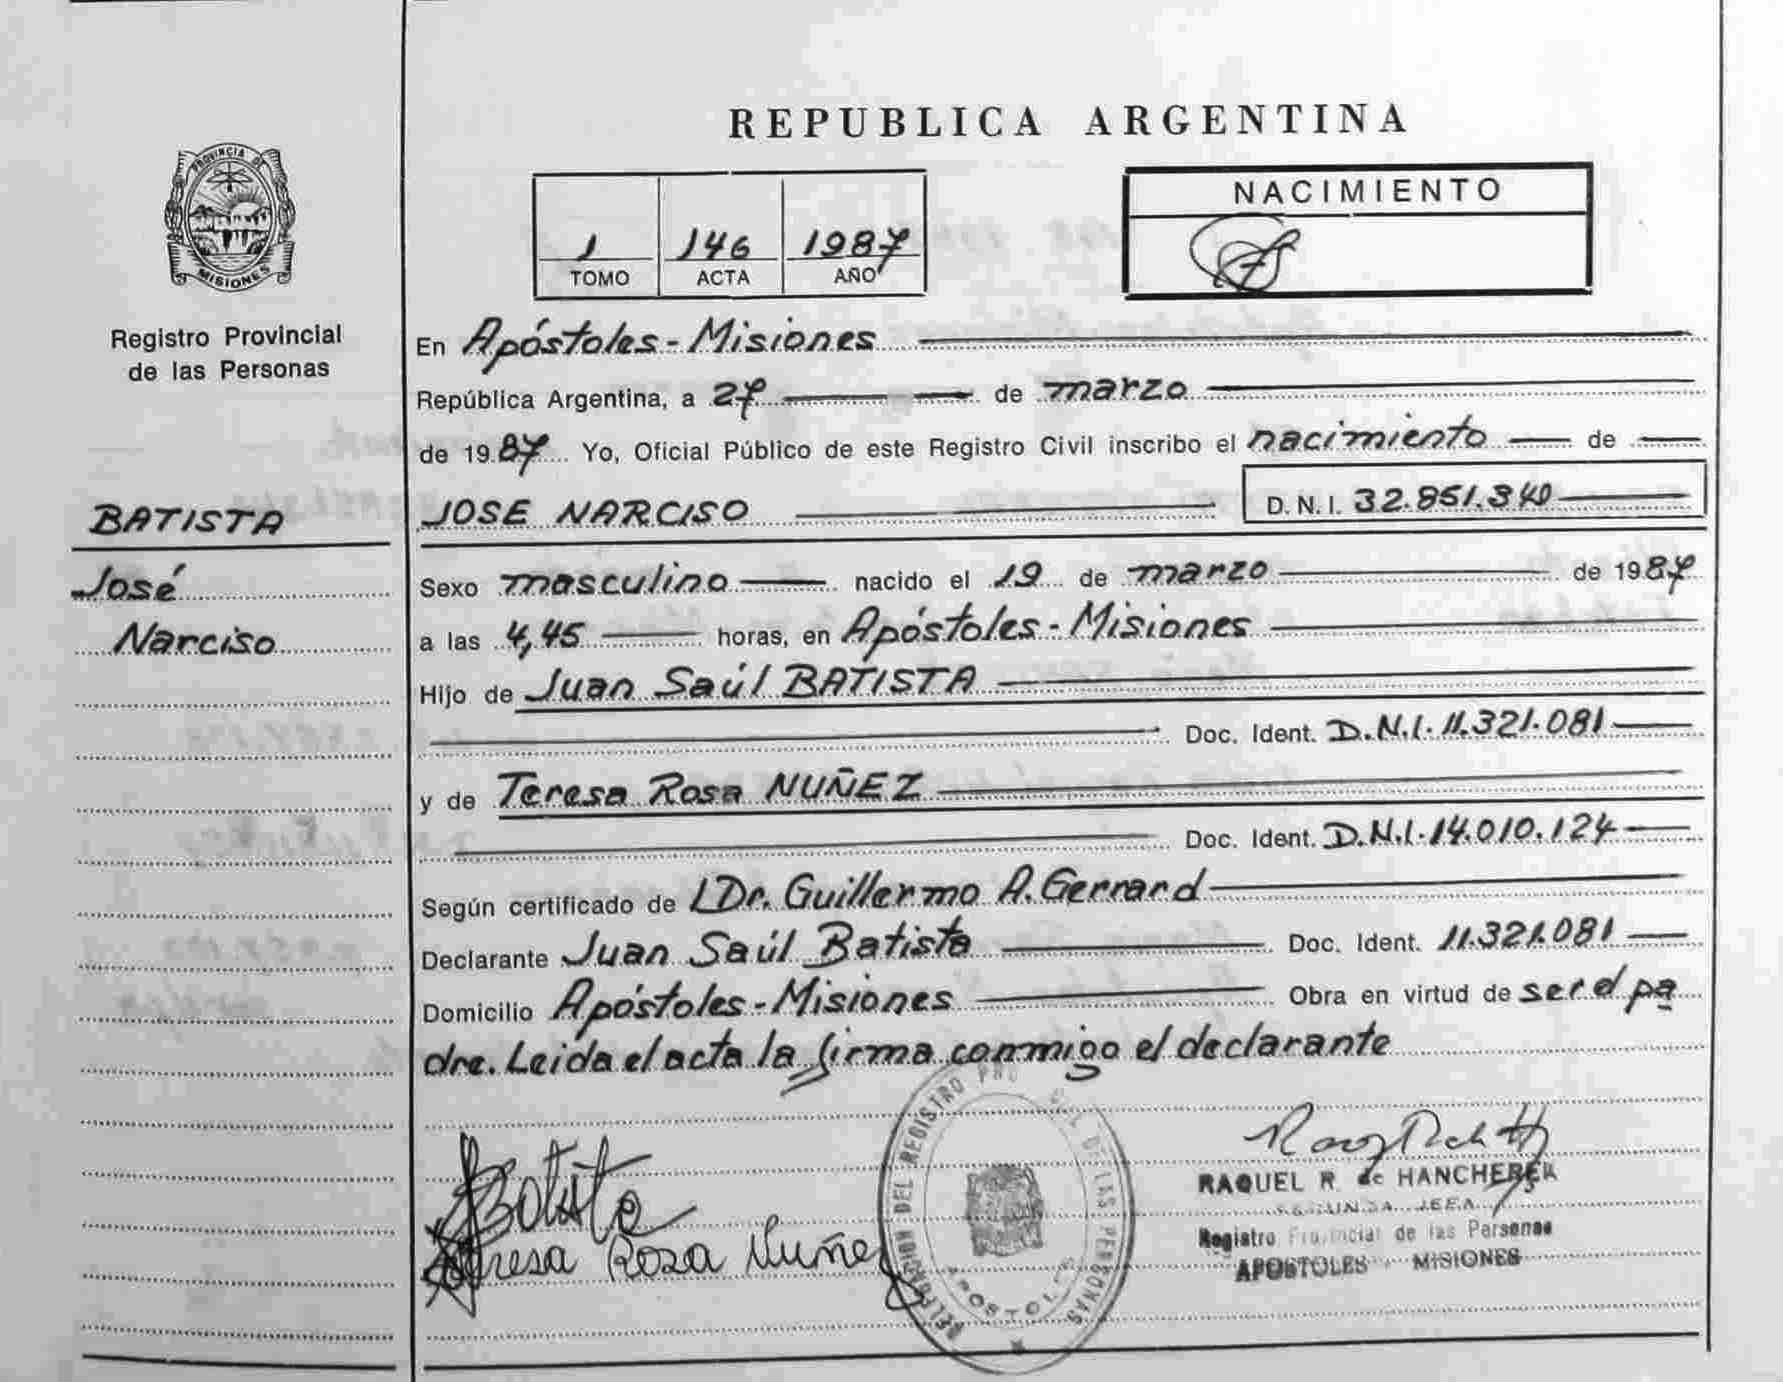 REPUBLICA ARGENTINA
PROVINCIA DE
MISIONES
Registro Provincial
de las Personas
1 146 1987
TOMO ACTA AÑO
NACIMIENTO
En Apóstoles - Misiones
República Argentina, a 27 de marzo
de 1987 Yo, Oficial Público de este Registro Civil inscribo el nacimiento de
BATISTA
JOSE NARCISO D.N.I. 32.851.340
José
Narciso
Sexo masculino nacido el 19 de marzo de 1987
a las 4,45 horas, en Apóstoles - Misiones
Hijo de Juan Saúl BATISTA
Doc. Ident. D.N.I. 11.321.081
y de Teresa Rosa NUÑEZ
Doc. Ident. D.N.I. 14.010.124
Según certificado de Dr. Guillermo A. Gerrard
Declarante Juan Saúl Batista Doc. Ident. 11.321.081
Domicilio Apóstoles - Misiones Obra en virtud de ser el pa
dre. Leida el acta la firma conmigo el declarante
Batista
Teresa Rosa Nuñez
DELEGACION DEL REGISTRO DE LAS PERSONAS
APOSTOLES
RAQUEL R. de HANCHERUK
SEGUNDA JEFA
Registro Provincial de las Personas
APOSTOLES MISIONES